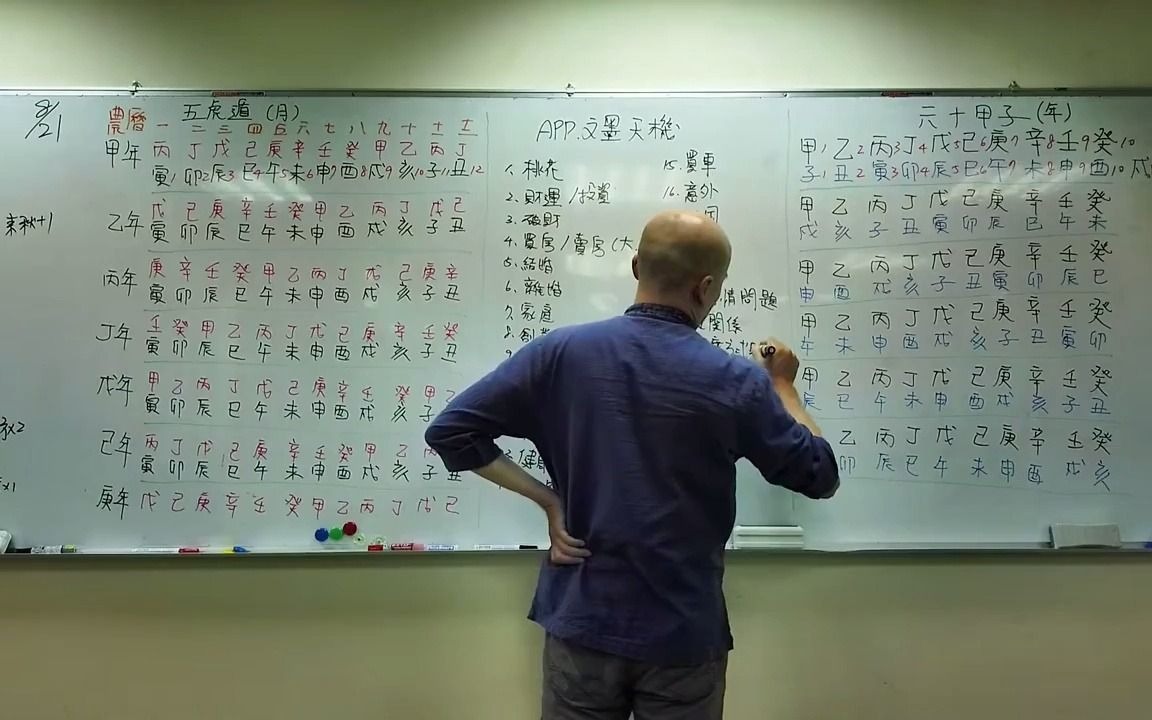 8/21
五虎遁 (月)
農曆 一 二 三 四 五 六 七 八 九 十 十一 十二
甲年 丙 丁 戊 己 庚 辛 壬 癸 甲 乙 丙 丁
寅1 卯2 辰3 巳4 午5 未6 申7 酉8 戌9 亥10 子11 丑12
乙年 戊 己 庚 辛 壬 癸 甲 乙 丙 丁 戊 己
寅 卯 辰 巳 午 未 申 酉 戌 亥 子 丑
丙年 庚 辛 壬 癸 甲 乙 丙 丁 戊 己 庚 辛
寅 卯 辰 巳 午 未 申 酉 戌 亥 子 丑
丁年 壬 癸 甲 乙 丙 丁 戊 己 庚 辛 壬 癸
寅 卯 辰 巳 午 未 申 酉 戌 亥 子 丑
戊年 甲 乙 丙 丁 戊 己 庚 辛 壬 癸 甲 乙
寅 卯 辰 巳 午 未 申 酉 戌 亥 子
己年 丙 丁 戊 己 庚 辛 壬 癸 甲 乙 丙
寅 卯 辰 巳 午 未 申 酉 戌 亥 子 丑
庚年 戊 己 庚 辛 壬 癸 甲 乙 丙 丁 戊 己
APP.文墨天機
1. 桃花
2. 財運/投資
3. 破財
4. 買房/賣房(大
5. 結婚
6. 離婚
7. 家庭
8. 創
9.
健康
15. 買車
16. 意外
情問題
關係
六十甲子 (年)
甲1 乙2 丙3 丁4 戊5 己6 庚7 辛8 壬9 癸10
子1 丑2 寅3 卯4 辰5 巳6 午7 未8 申9 酉10 戌
甲 乙 丙 丁 戊 己 庚 辛 壬 癸
戌 亥 子 丑 寅 卯 辰 巳 午 未
甲 乙 丙 丁 戊 己 庚 辛 壬 癸
申 酉 戌 亥 子 丑 寅 卯 辰 巳
甲 乙 丙 丁 戊 己 庚 辛 壬 癸
午 未 申 酉 戌 亥 子 丑 寅 卯
甲 乙 丙 丁 戊 己 庚 辛 壬 癸
辰 巳 午 未 申 酉 戌 亥 子 丑
乙 丙 丁 戊 己 庚 辛 壬 癸
卯 辰 巳 午 未 申 酉 戌 亥